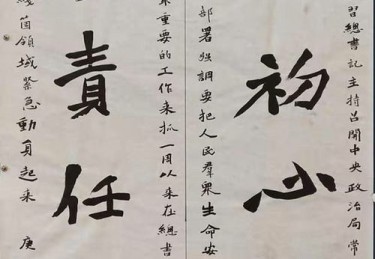 習總書記主持召開中央政治局常
初心
部署強調要把人民羣眾生命安
重要的工作來抓一周以來在總書
責任
箇領域緊急動員起來 庚